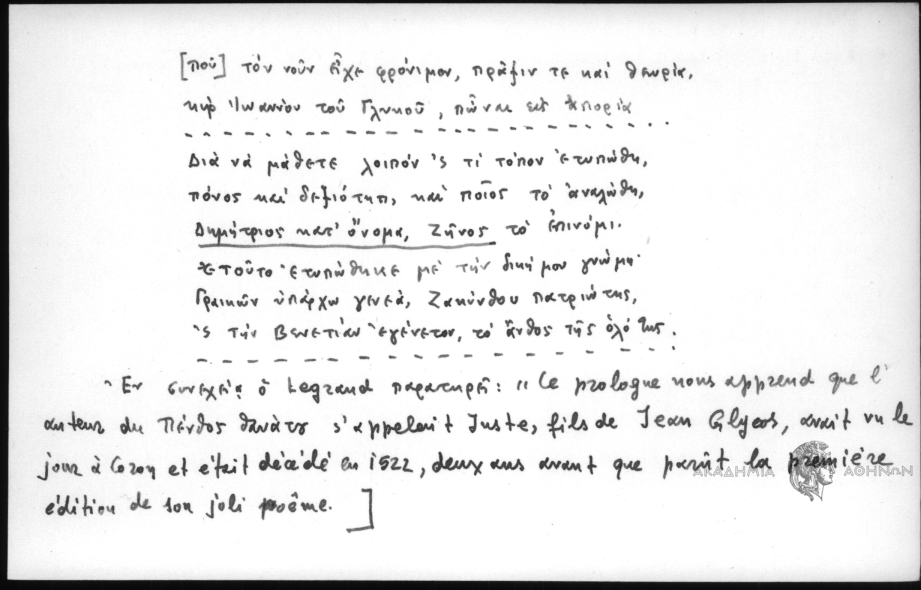 [ποῦ] τόν νοῦν εἶχε φρόνιμον, πρᾶξιν τε καί θεωρία,
κύρ Ἰωαννίου τοῦ Γλυκοῦ, πὤναι εἰς ἀπορία
Διά νά μάθετε λοιπόν 'ς τί τόπον ἐτυπώθη,
πόνος καί δεξιότητι, καί ποῖος τό ἀναλώθη,
Δημήτριος κατ' ὄνομα, Ζῆνος τό ἐπινόμι.
Τοῦτο ἐτυπώθηκε μέ τήν δική μου γνώμη
Γραικῶν ὑπάρχω γενεά, Ζακύνθου πατριώτης,
'ς τήν Βενετίαν ἐγένετον, τό ἄνθος τῆς ὁλότης.
Ἐν συνεχείᾳ ὁ Legrand παρατηρεῖ: "Ce prologue nous apprend que l'
auteur du Πένθος θανάτου s'appelait Juste, fils de Jean Glycos, avait vu le
jour à Coron et était décédé en 1522, deux ans avant que parût la première
édition de son joli poême.]
ΑΚΑΔΗΜΙΑ ΑΘΗΝΩΝ